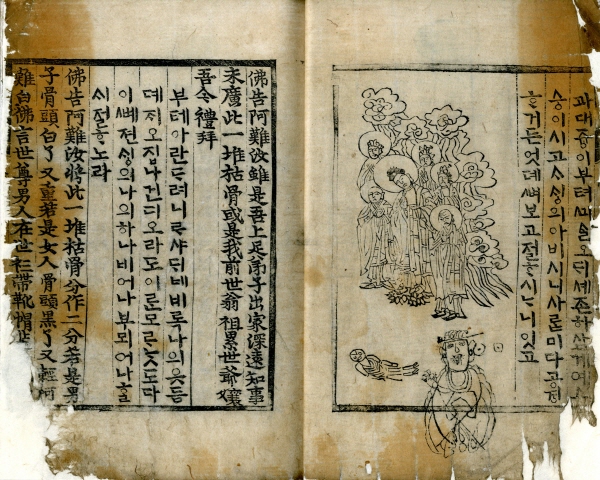 과대즁이부텨ᄭᅴᄉᆞᆯ오ᄃᆡ셰존하
승이시고ᄉᆞᄉᆡᆼ의아비시니사ᄅᆞ미다공경
ᄒᆞᆯ거든엇뎨ᄲᅧ보고졀ᄒᆞ시ᄂᆞ니잇고
佛告阿難汝雖是吾上足弟子出家深遠知事
未廣此一堆枯骨或是我前世翁祖累世爺孃
吾今禮拜
부톄아란ᄃᆞ려니ᄅᆞ샤ᄃᆡ네비록나의읏듬
뎨지오집나건디오라도이ᄅᆞᆯ모ᄅᆞ놋도다
이ᄲᅧ젼ᄉᆡᆼ의나의하나비어나부뫼어나ᄒᆞᆯ
ᄉᆡ졀ᄒᆞ노라
佛告阿難汝將此一堆枯骨分作二分若是男
子骨頭白了又重若是女人骨頭黑了又輕阿
難白佛言世尊男人在世衫帶靴帽